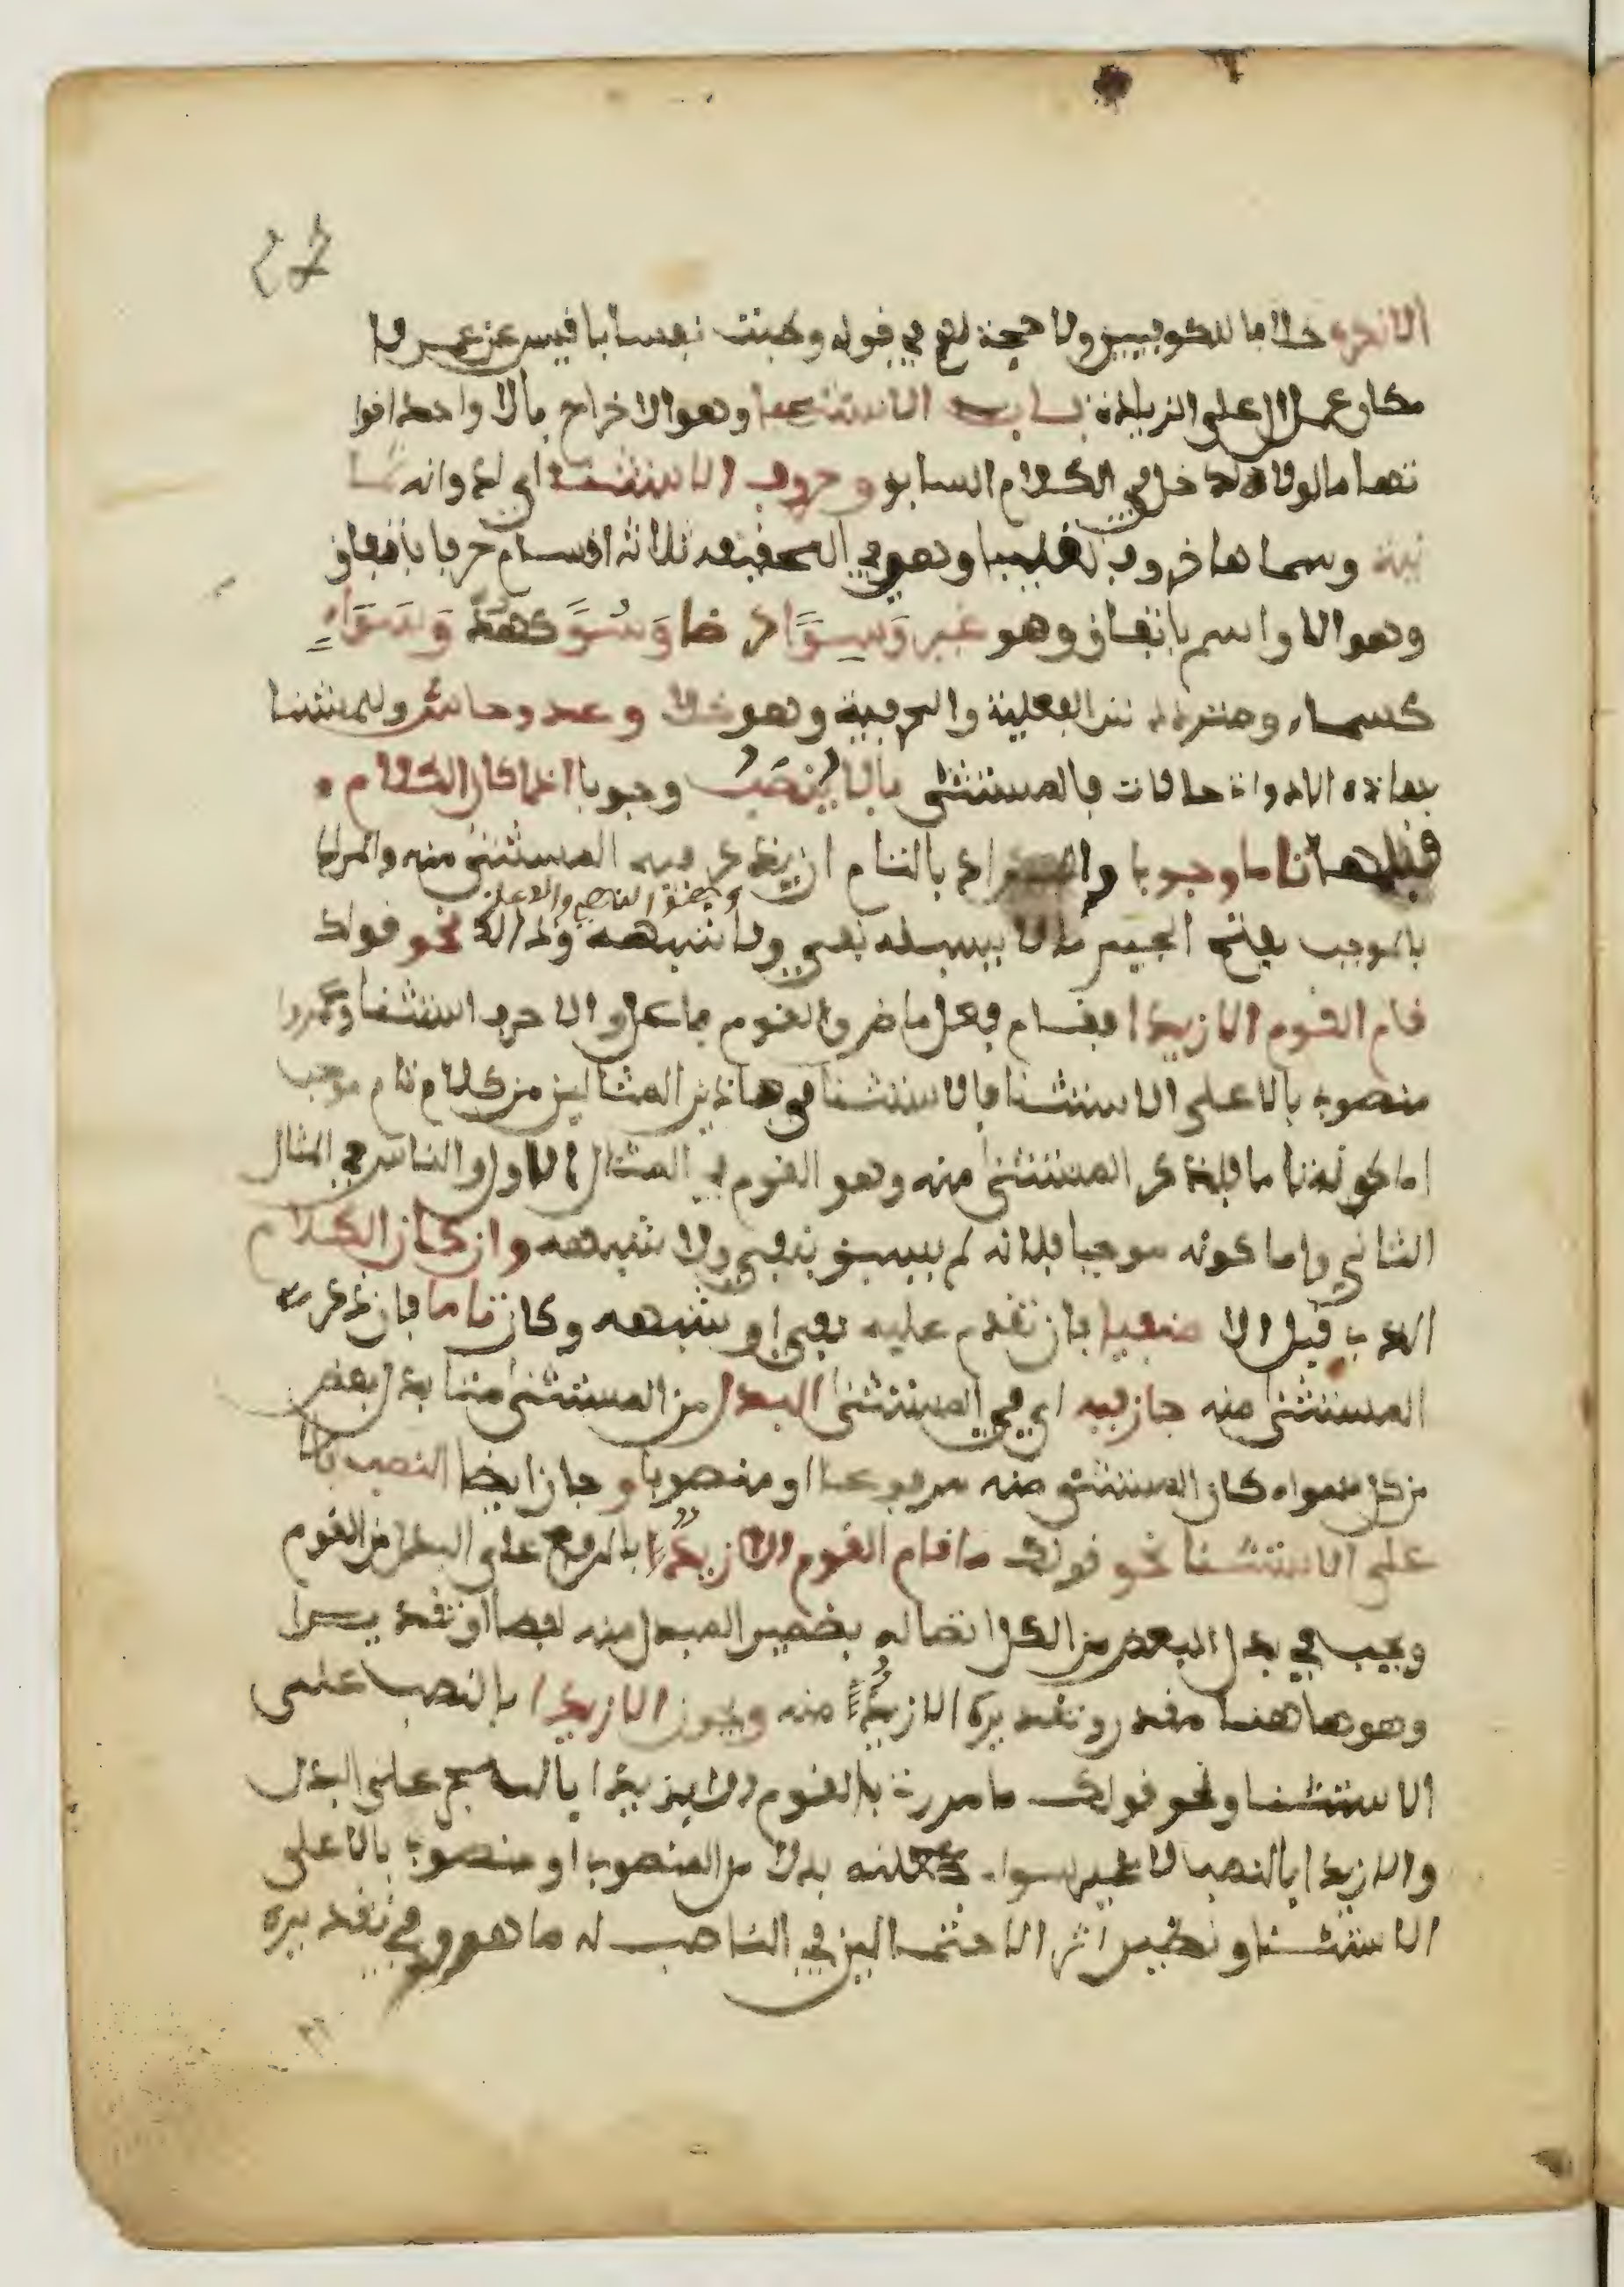 الا نكرة خلافا للكوفيين ولا حجة لهم في قوله وطبت نفسا يا قيس عن عمرو
مكان عمل ال على الزيادة باب الاستثنا وهو الاخراج بالا واحدا اخوا
تها ما لولاه لدخل في الكلام السابق وحروف الاستثنا اي ادواته ثما
نية وسماها حروف تغليبا وهي في التحقيق ثلاثة اقسام حرف باتفاق
وهو الا واسم باتفاق وهو غير وسوا كرضا وسوى كهدى وسواء
كسماء ومتردد بين الفعلية والحرفية وهو خلا وعدا وحاشى وللمستثنا
بهاذه الادواة حالات فالمستثنى بالا ينصب وجوبا اذا كان الكلام
قبلها تاما موجبا والمراد بالتام ان يذكر فيه المستثنى منه والمراد
بالموجب بفتح الجيم ما لا يسبقه نفي ولا شبهه وذالك نحو قولك
قام القوم الا زيدا فقام فعل ماض والقوم فاعل والا حرف استثنا وزيدا
منصوب بالا على الاستثنا فالاستثنا في هاذين المثالين من كلام تام موجب
اما كونه تاما فلذكر المستثنى منه وهو القوم في المثال الاول والناس في المثال
الثاني واما كونه موجبا فلانه لم يسبق بنفي ولا شبهه وان كان الكلام
الذي قبل الا منفيا بان تقدم عليه نفي او شبهه وكان تاما بان ذكر
المستثنى منه جاز فيه اي في المستثنى البدل من المستثنى منه بدل بعض
من كل سواء كان المستثنى منه مرفوعا او منصوبا وجاز ايضا النصب بالا
على الاستثنا نحو قولك ما قام القوم الا زيد بالرفع على البدل من القوم
ويجب في بدل البعض من الكل اتصاله بضمير المبدل منه لفظا او تقديرا
وهو هاهنا مقدر وتقديره الا زيد منه ويجوز الا زيدا بالنصب على
الاستثنا ونحو قولك ما مررت بالقوم الا بزيد على البدل
والا زيدا بالنصب لا غير سواء جعلته بدلا من المنصوب او منصوب بالا على
الاستثنا ويظهر اثر الاحتمالين في الناصب له ما هو وفي تقديره